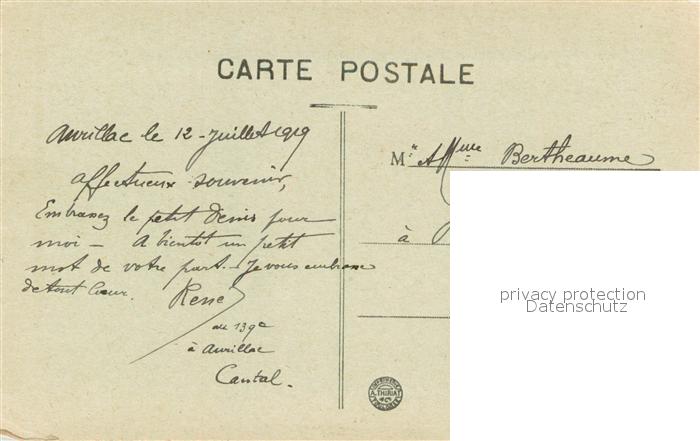 CARTE POSTALE
Aurillac le 12 - Juillet 1919
Affectueux souvenir,
Embrassez le petit Denis pour
moi - A bientot un petit
mot de votre part. - Je vous embrasse
de tout Cœur. René
au 139e
à Aurillac
Cantal.
Mr Mme Bertheaume
à
privacy protection
Datenschutz
A. THIRIAT